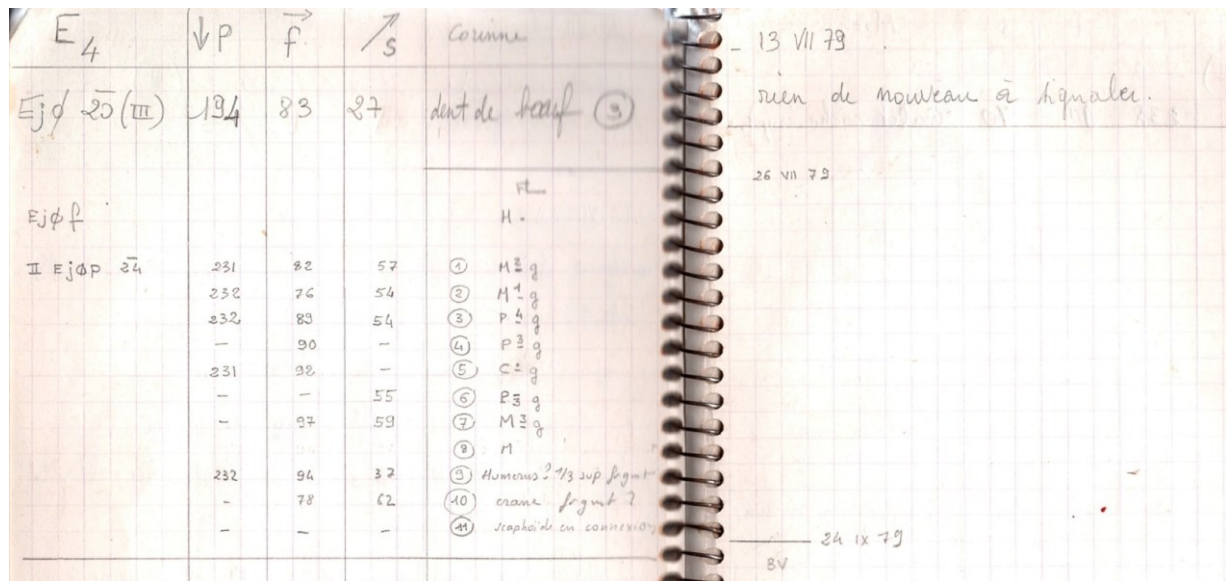 E4 ↓P f→ ↗S Corinne
Ejϕ 25 (III) 194 83 27 dent de bœuf ⑨
Ejϕ f H.
II EjϕP 24 231 82 57 ① M2 g
232 76 54 ② M1 g
232 89 54 ③ P4 g
— 90 — ④ P3 g
231 92 — ⑤ C g
— — 55 ⑥ P3 g
— 97 59 ⑦ M3 g
⑧ M
232 94 37 ⑨ Humerus ? 1/3 sup frgmt
— 78 62 ⑩ crane frgmt ?
— — — ⑪ scaphoïde en connexion
- 13 VII 79
rien de nouveau à signaler.
26 VII 79
24 IX 79
BV